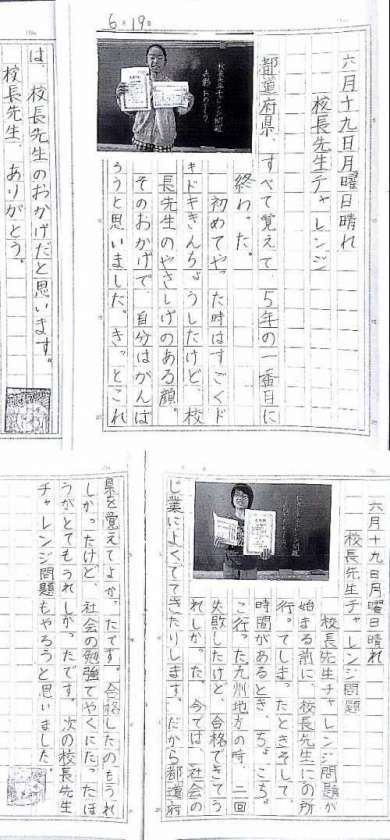 6.19.
六月十九日月曜日晴れ
校長先生チャレンジ
都道府県、すべて覚えて、5年の一番目に
終わった。
初めてやった時はすごくド
キドキきんちょうしたけど、校
長先生のやさしげのある顔。
そのおかげで、自分はがんば
ろうと思いました。きっとこれ
は、校長先生のおかげだと思います。
校長先生、ありがとう。
六月十九日月曜日晴れ
校長先生チャレンジ問題
校長先生チャレンジ問題が
始まる前に、校長先生にの所
行ってしまったときそして、
時間があるとき、ちょこちょ
こ行った九州地方の時、二回
失敗したけど、合格できてう
れしかった。今では、社会の
じ業によくでてきたりします。だから都道府
県を覚えてよかったです。合格したのもうれ
しかったけど、社会の勉強でやくにたったほ
うがとてもうれしかったです。次の校長先生
チャレンジ問題もやろうと思いました。